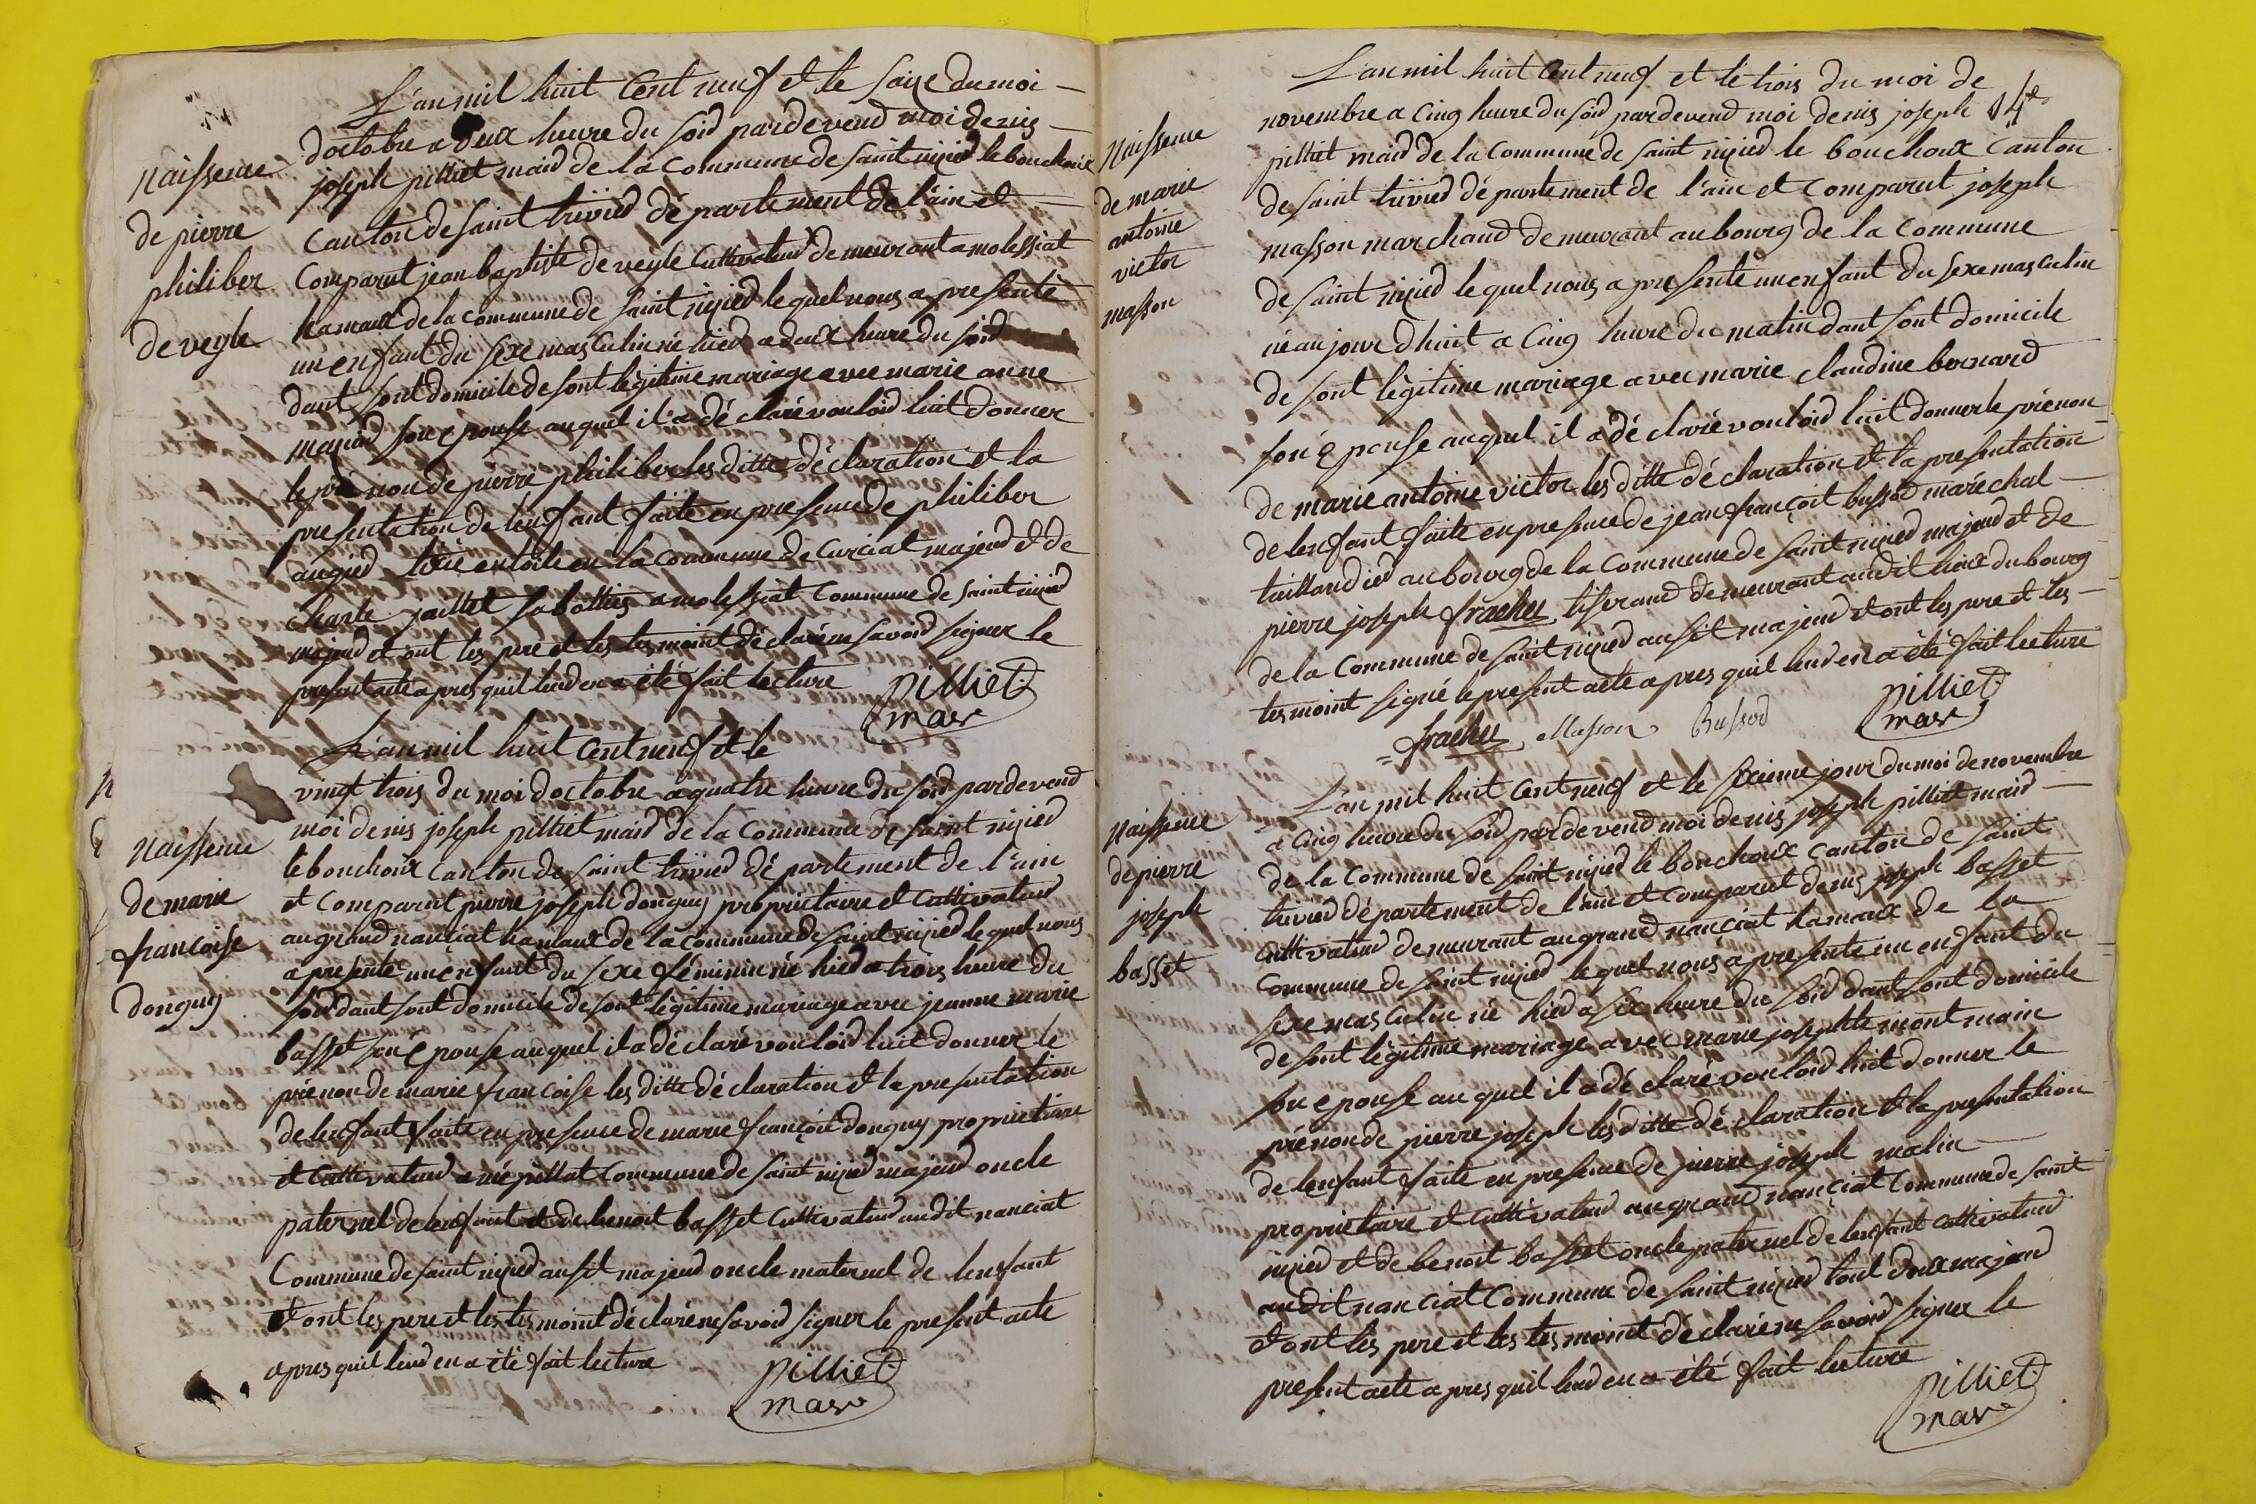 L'an mil huit Cent neuf et le saize du moi
doctobre a deux heure du soid pardevend moi denis
joseph pilliet maid de la Commune de saint nizied le bouchoux
Canton de saint trivied département de l'ain et
Comparut jean baptiste deveyle Cultivateud demeurant a molessiat
hamaux de la commune de saint nizied lequel nous a presenté
un enfant du sexe masculin né hied a deux heure du soid
dant sont domicile de sont légitime mariage avec marie anne
son epouse auquel il a déclaré vouloid luit donner
le prénon de pierre philiber les ditte déclaration et la
presentation de lenfant faite en presence de philiber
en toile en la commune de Curciat majeud et de
Charle jaillet sabottier a molessiat Commune de saint nizied
majeud et ont les pere et les tesmoint déclaré ne savoid signer le
present acte apres quil leud en a été fait lecture
pilliet
mare
naissence
de pierre
philiber
deveyle
L'an mil huit Cent neuf et le
vingt trois du moi doctobre a quatre heure du soid pardevend
moi denis joseph pilliet maid de la Commune de saint nizied
le bouchoux canton de saint trivied département de l'ain
et Comparut pierre joseph donguy proprietaire et Cultivateud
au grand nanciat hamaux de la commune de saint nizied lequel nous
a presenté un enfant du sexe féminin né hied a trois heure du
soid dant sont domicile de sont légitime mariage avec jeanne marie
basset son épouse auquel il a déclaré vouloid luit donner le
prénon de marie francoise les ditte déclaration et la presentation
de lenfant faite en presence de marie françoit donguy proprietaire
et Cultivateud a pillat Commune de saint nizied majeud oncle
paternel de lenfant et de benoit basset Cultivateud audit nanciat
Commune de saint nizied ausit majeud oncle maternel de lenfant
et ont les pere et les tesmoint déclaré ne savoid signer le present acte
apres quil leud en a été fait lecture
pilliet
mare
naissence
de marie
francoise
donguy
14e
L'an mil huit Cent neuf et le trois du moi de
novembre a Cinq heure du soid pardevend moi denis joseph
pilliet maid de la Commune de saint nizied le bouchoux Canton
de saint trivied département de l'ain et Comparut joseph
masson marchand demeurant au bourg de la Commune
de saint nizied lequel nous a presenté un enfant du sexe masculin
né aujourdhuit a Cinq heure du matin dant sont domicile
de sont légitime mariage avec marie claudine bernard
son épouse auquel il a déclaré vouloid luit donner le prénon
de marie antoine victor les ditte déclaration et la presentation
de lenfant faite en presence de jean françoit bussod maréchal
taillandied au bourg de la Commune de saint nizied majeud et de
pierre joseph frachet tiserand demeurant audit lieux du bourg
de la Commune de saint nizied ausit majeud et ont les pere et les
tesmoint signé le present acte apres quil leud en a été fait lecture
frachet Masson Bussod
pilliet
mare
naissence
de marie
antoine
victor
masson
L'an mil huit Cent neuf et le sixieme jour du moi de novembre
a Cinq heure du soid pardevend moi denis joseph pilliet maid
de la Commune de saint nizied le bouchoux Canton de saint
trivied département de l'ain et Comparut denis joseph basset
Cultivateud demeurant au grand nanciat hamaux de la
Commune de saint nizied lequel nous a presenté un enfant du
sexe masculin né hied a six heure du soid dant sont domicile
de sont légitime mariage avec marie josephte montmain
son epouse auquel il a déclaré vouloid luit donner le
prénon de pierre joseph les ditte déclaration et la presentation
de lenfant faite en presence de pierre joseph malin
proprietaire et Cultivateud au grand nanciat Commune de saint
nizied et de benoit basset oncle paternel de lenfant cultivateud
audit nanciat Commune de saint nizied tout deux majeud
et ont les pere et les tesmoint déclaré ne savoid signer le
present acte apres quil leud en a été fait lecture
pilliet
mare
naissence
de pierre
joseph
basset